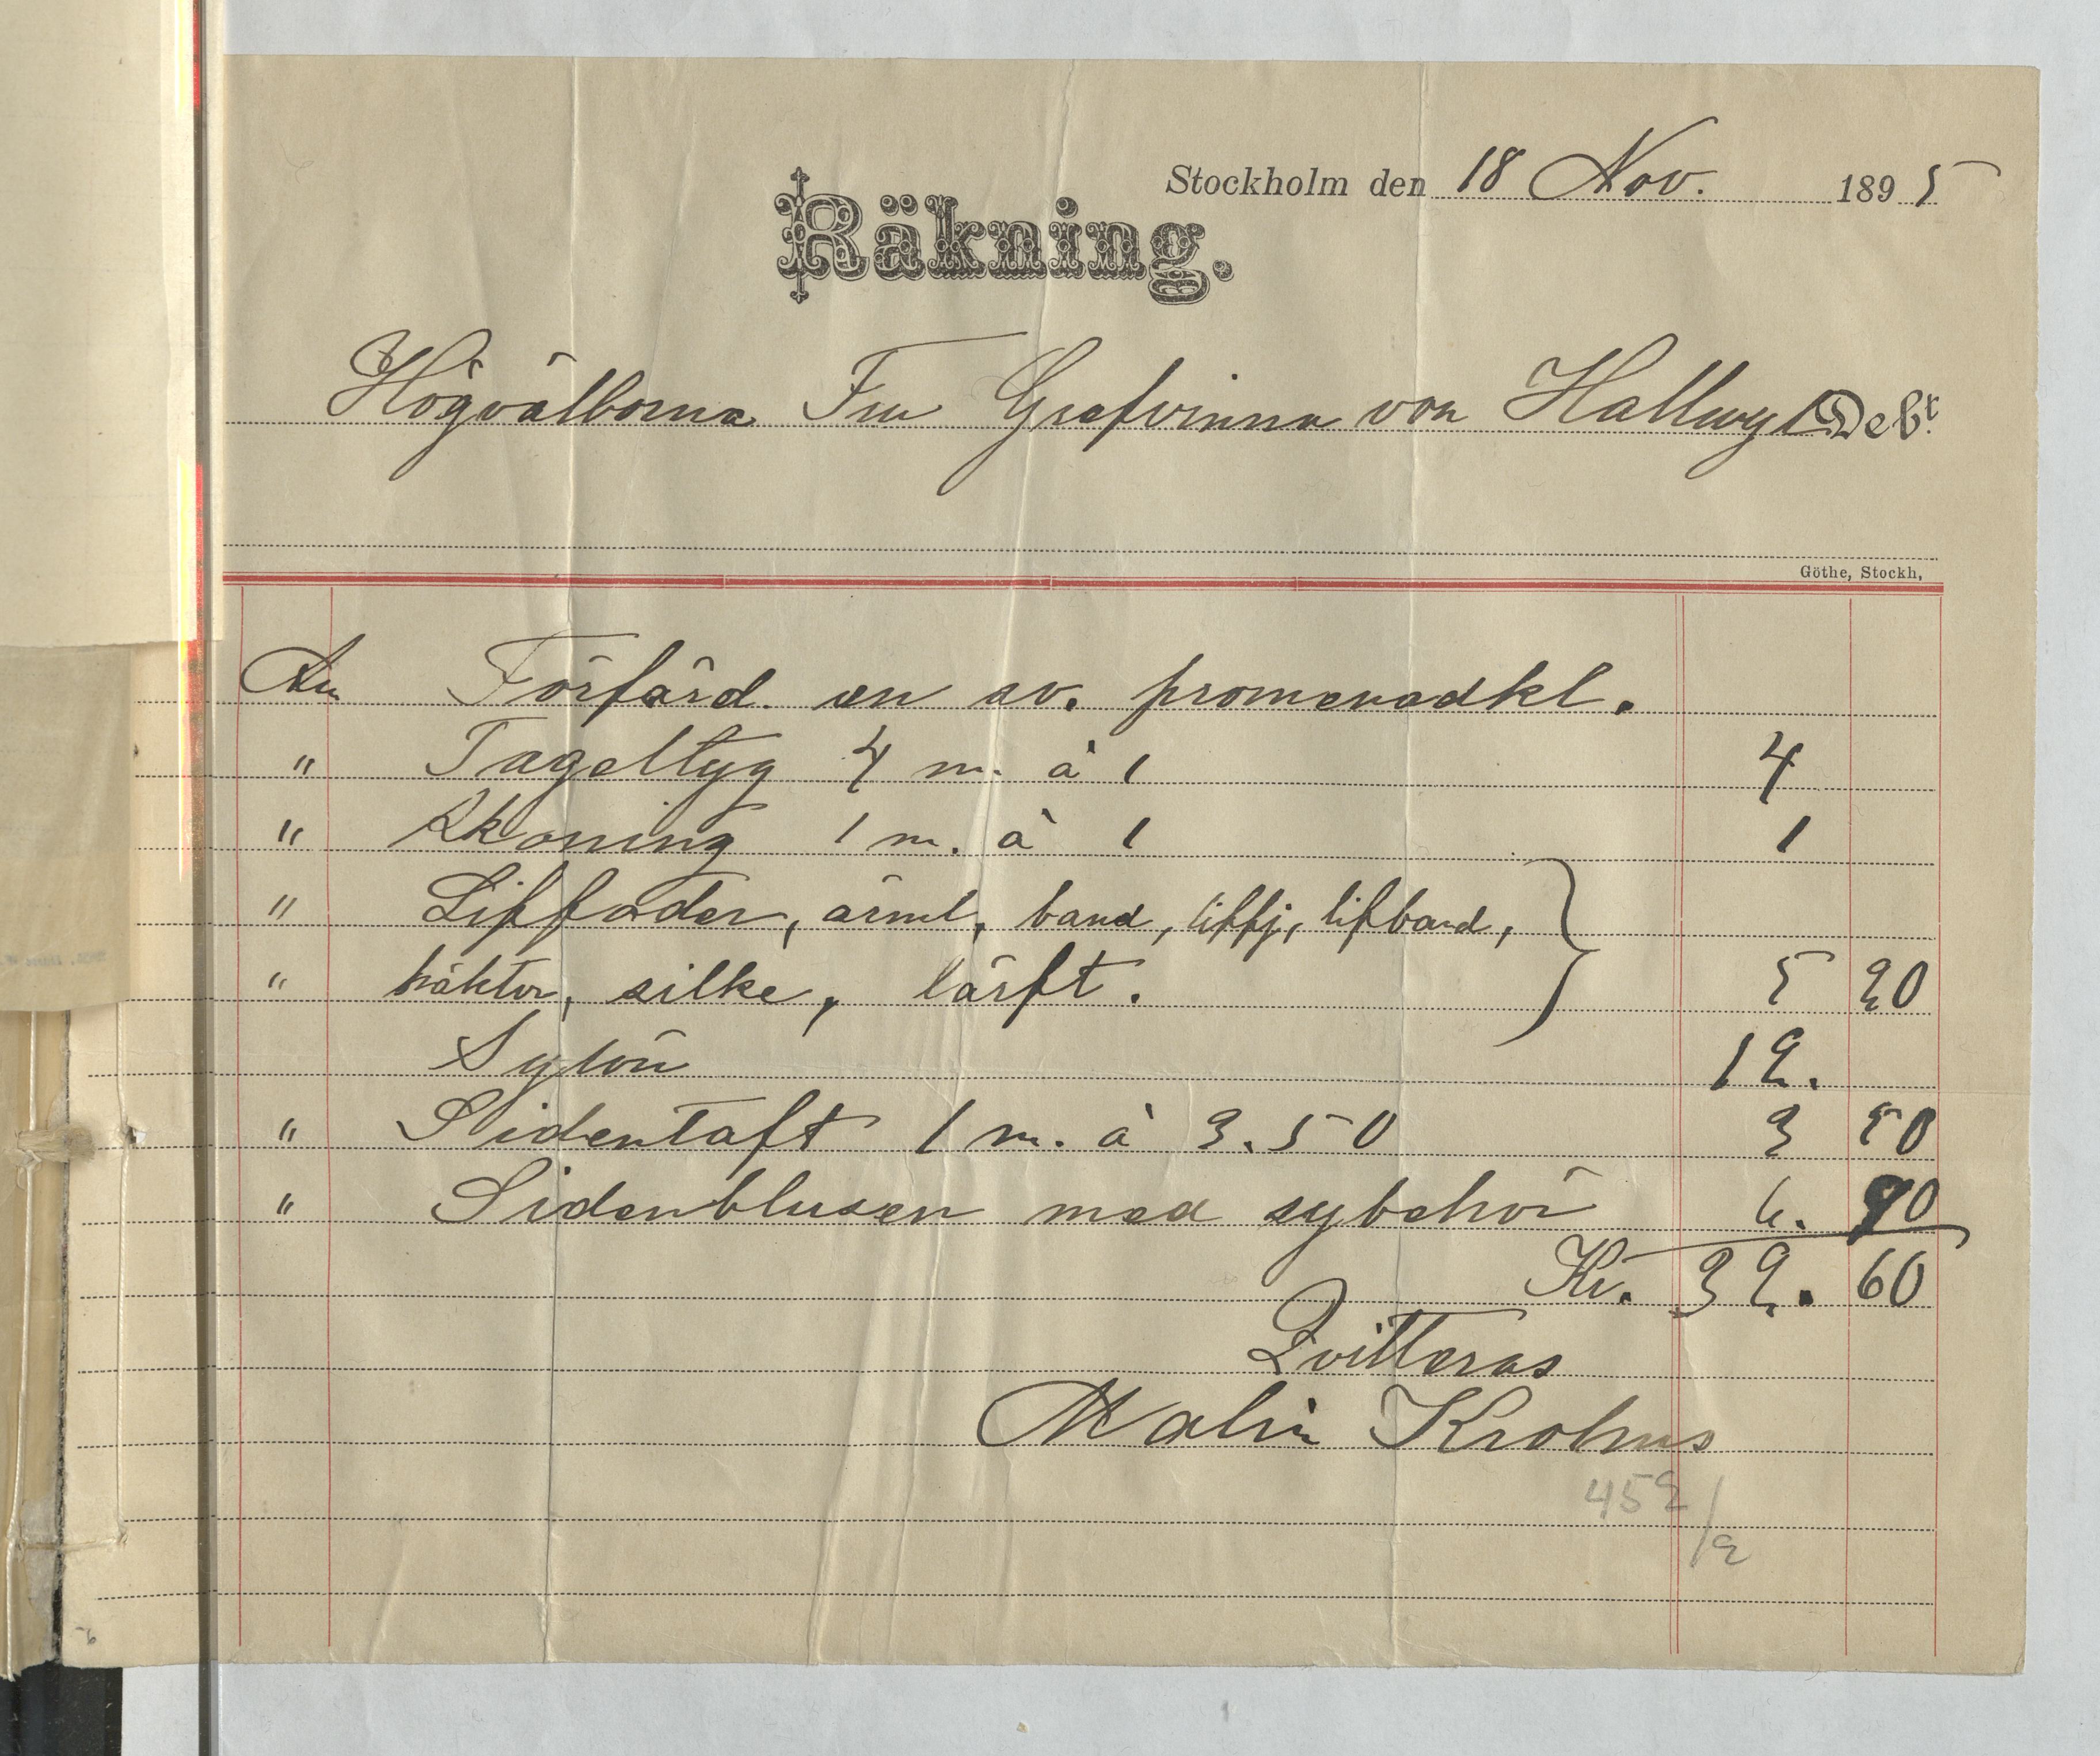 Stockholm den 18 Nov. 1895
Räkning.
Högvälborna Fru Grefvinna von Hallwyl Debt.
Göthe, Stockh.
An Förfärd. en sv. promenadkl.
" Tageltyg 4 m. à 1 4
" Skoning 1 m. à 1 1
" Liffoder, ärml, band, liffj, lifband,
" häktor, silke, lärft. 5 20
Sylön 12.
" Sidentaft 1 m. à 3.50 3 50
" Sidenblusen med sybehör 6. 90
Kr. 32. 60
Qvitteras
Malin Krohns
452/2